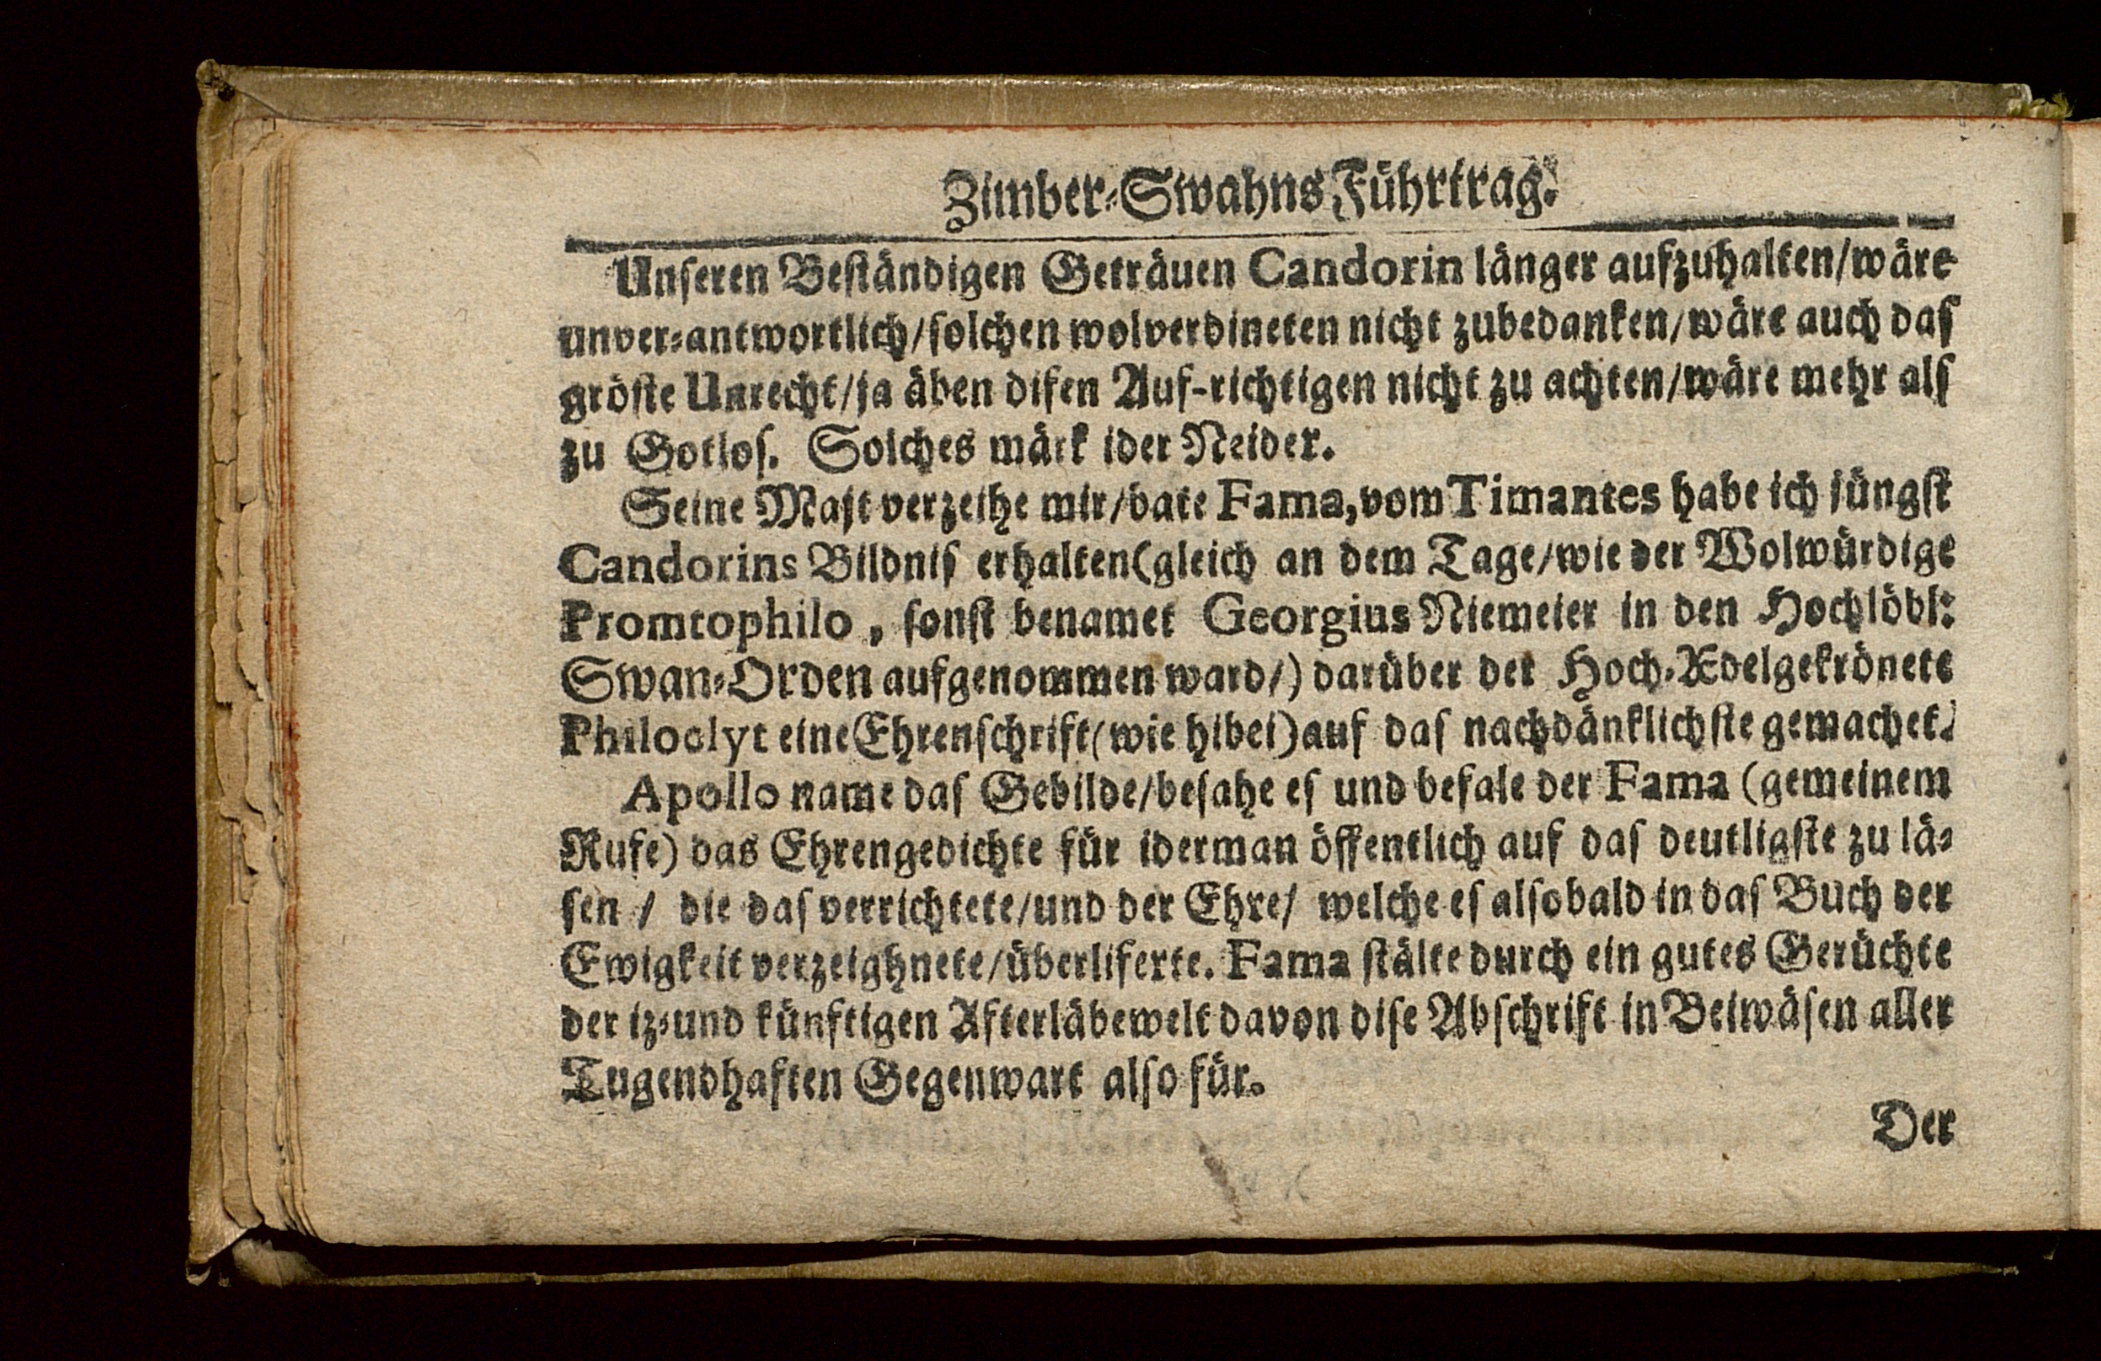 Zimber-Swahns Führtrag.
Unseren Beständigen Geträuen Candorin länger aufzuhalten/wäre
unver-antwortlich/solchen wolverdineten nicht zubedanken/wäre auch das
gröste Unrecht/ja äben disen Auf-richtigen nicht zu achten/wäre mehr als
zu Gotlos. Solches märk ider Neider.
Seine Majt verzeihe mir/bate Fama, vom Timantes habe ich jüngst
Candorins Bildnis erhalten(gleich an dem Tage/wie der Wolwürdige
Promtophilo, sonst benamet Georgius Niemeier in den Hochlöbl:
Swan-Orden aufgenommen ward/) darüber der Hoch-Ædelgekrönete
Philoclyt eine Ehrenschrift(wie hibei)auf das nachdänklichste gemachet.
Apollo name das Gebilde/besahe es und befale der Fama (gemeinem
Rufe) das Ehrengedichte für iderman öffentlich auf das deutligste zu lä-
sen / die das verrichtete/und der Ehre/ welche es alsobald in das Buch der
Ewigkeit verzeighnete/überliferte. Fama stälte durch ein gutes Gerüchte
der iz-und künftigen Afterläbewelt davon dise Abschrift in Beiwäsen aller
Tugendhaften Gegenwart also für.
Der